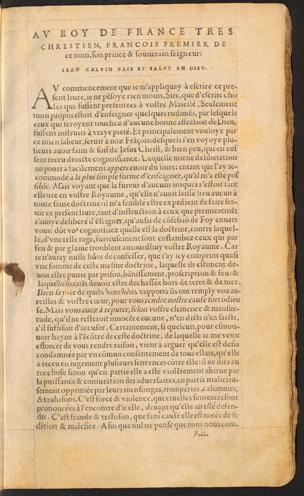 AV ROY DE FRANCE TRES
CHRESTIEN, FRANCOIS PREMIER DE
ce nom, son prince & souuerain seigneur:
IEAN CALVIN PAIX ET SALVT EN DIEV.
AV commencement que ie m'appliquay à escrire ce pre
sent liure, ie ne pẽsoye rien moins, Sire, que d'escrire cho
ses qui fussent presentees à vostre Maiesté. Seulement
mon propos estoit d'enseigner quelques rudimẽs, par lesquels
ceux qui seroyent touchez d'aucune bonne affection de Dieu,
fussent instruits à vraye pieté. Et principalement vouloye par
ce mien labeur, seruir à noz Frãçois desquels i'en voyoye plu-
sieurs auoir faim & soif de Iesus Christ, & bien peu, qui en eus
sent receu droicte cognoissance. Laquelle miene deliberation
on pourra facilement apperceuoir du liure: entant que l'ay ac-
commodé à la plus simple forme d'enseigner, qu'il m'a esté pos
sible. Mais voyant que la fureur d'aucuns iniques s'estoit tant
esleuee en vostre Royaume, qu'elle n'auoit laissé lieu aucun à
toute saine doctrine: il m'a semblé estre expedient de faire ser-
uir ce present liure, tant d'instruction à ceux que premierement
i'auoye deliberé d'ẽseigner, qu'aussi de cõfession de Foy enuers
vous: dõt vo° cognoissiez quelle est la doctrine, contre laquel-
le, d'vne telle rage, furieusement sont enflambez ceux qui par
feu & par glaiue troublent auiourdhuy vostre Royaume. Car
ie n'auray nulle hõte de confesser, que i'ay icy comprins quasi
vne somme de ceste mesme doctrine, laquelle ils estiment de-
uoir estre punie par prison, bannissement, proscription & feu: &
laquelle ils crient deuoir estre dechassee hors de terre & de mer.
Bien say-ie de quels horribles rapports ils ont remply voz au-
reilles & vostre cœur, pour vous rendre nostre cause fort odieu
se. Mais vous auez à reputer, selon vostre clemence & mansue-
tude, qu'il ne resteroit innocẽce aucune, n'en dits n'en faicts,
s'il suffisoit d'accuser. Certainement, si quelcun, pour esmou-
uoir hayne à l'ẽcõtre de ceste doctrine, de laquelle ie me veux
efforcer de vous rendre raison, vient à arguer qu'elle est desia
condamnee par vn cõmun consentement de tous estats, qu'elle
a receu en iugement plusieurs sentences cõtre elle: il ne dira au
tre chose sinon qu'en partie elle a esté violẽtement abbatue par
la puissance & coniuration des aduersaires, en partie malicieu-
sement opprimee par leurs mensonges, tromperies, calomnies,
& trahisons. C'est force & violence, que cruelles sentences sont
prononcees à l'encontre d'icelle, deuant qu'elle ait esté defen-
due. C'est fraude & trahison, que sans cause elle est notee de se
dition & malefice. A fin que nul ne pense que nous nous com-